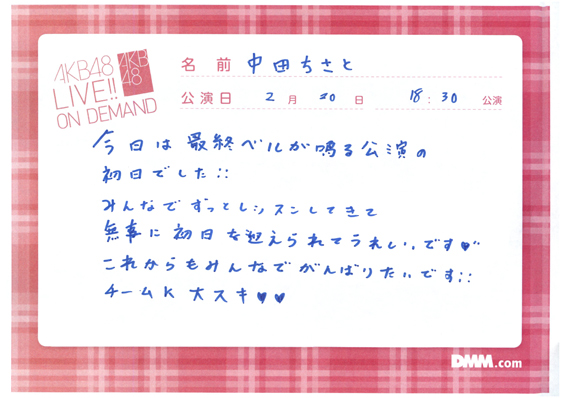 AKB48
LIVE!!
ON DEMAND
AKB
48
名前 中田ちさと
公演日 2月20日 18:30 公演
今日は最終ベルが鳴る公演の
初日でした!!
みんなでずっとレッスンしてきて
無事に初日を迎えられてうれしいです♥♥
これからもみんなでがんばりたいです!!
チームK大スキ♥♥
DMM.com